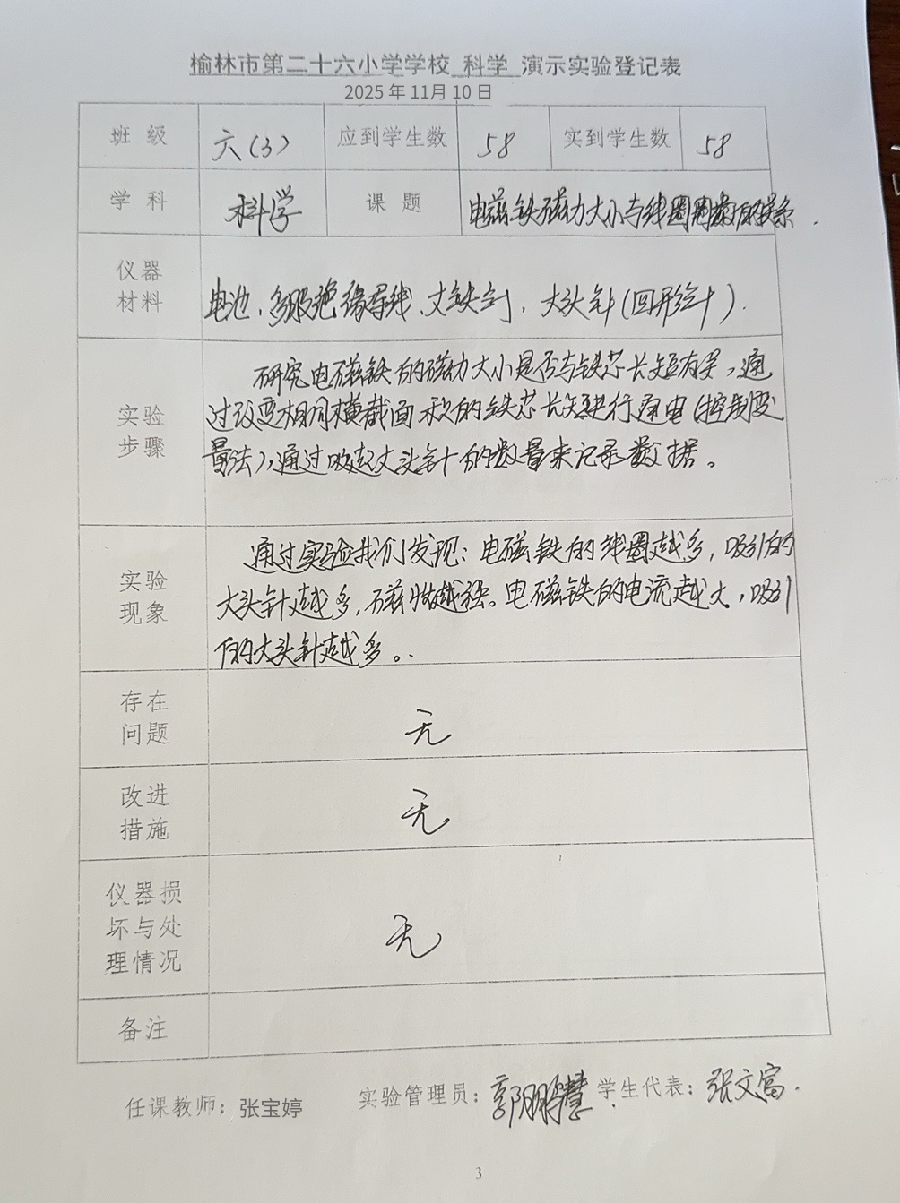 榆林市第二十六小学学校 科学 演示实验登记表
2025 年 11月 10 日
班 级 六(3) 应到学生数 58 实到学生数 58
学 科 科学 课 题 电磁铁磁力大小与线圈周数的关系.
仪器
材料
电池、多股绝缘导线、大铁钉, 大头针(回形针).
实验
步骤
研究电磁铁的磁力大小是否与铁芯长短有关,通
过改变相同横截面积的铁芯长短进行通电(控制变
量法),通过吸起大头针的数量来记录数据。
实验
现象
通过实验我们发现:电磁铁的线圈越多,吸引的
大头针越多,磁性越强。电磁铁的电流越大,吸引
的大头针越多。
存在
问题
无
改进
措施
无
仪器损
坏与处
理情况
无
备注
任课教师: 张宝婷 实验管理员: 郭鹏慧 学生代表: 张文富.
3